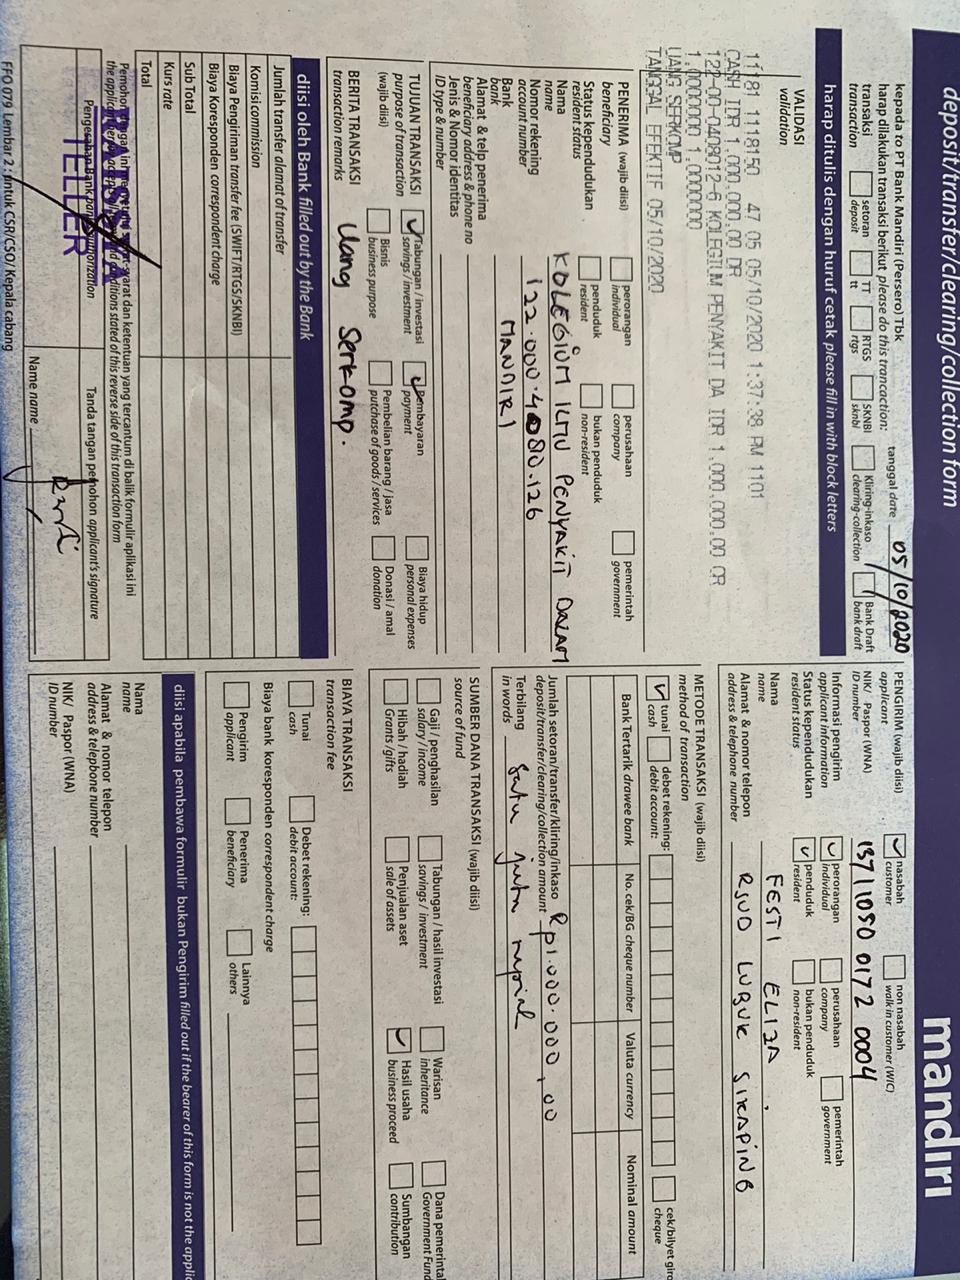 deposit/transfer/clearing/collection form
mandırı
kepada to PT Bank Mandiri (Persero) Tbk
tanggal date 05/10/2020
harap dilakukan transaksi berikut please do this trancaction:
transaksi
transaction
setoran
deposit
TT
tt
RTGS
rtgs
SKNBI
sknbi
Kliring-inkaso
clearing-collection
Bank Draft
bank draft
harap ditulis dengan huruf cetak please fill in with block letters
VALIDASI
validation
11181 1118150 47 05 05/10/2020 1:37:38 PM 1101
CASH IDR 1.000.000,00 DR
122-00-0408012-6 KOLEGIUM PENYAKIT DA IDR 1.000.000,00 CR
1.0000000 1.0000000
UANG SERKOMP
TANGGAL EFEKTIF 05/10/2020
PENERIMA (wajib diisi)
beneficiary
perorangan
individual
perusahaan
company
pemerintah
government
Status kependudukan
resident status
penduduk
resident
bukan penduduk
non-resident
Nama
name
KOLEGIUM ILMU PENYAKIT DALAM
Nomor rekening
account number
122.000.4080.126
Bank
bank
MANDIRI
Alamat & telp penerima
beneficiary address & phone no
Jenis & Nomor identitas
ID type & number
TUJUAN TRANSAKSI
purpose of transaction
(wajib diisi)
Tabungan / investasi
savings / investment
Pembayaran
payment
Biaya hidup
personal expenses
Bisnis
business purpose
Pembelian barang / jasa
putchase of goods / services
Donasi / amal
donation
BERITA TRANSAKSI
transaction remarks
Uang Serkomp.
diisi oleh Bank filled out by the Bank
Jumlah transfer alamat of transfer
Komisi commission
Biaya Pengiriman transfer fee (SWIFT/RTGS/SKNBI)
Biaya Koresponden correspondent charge
Sub Total
Kurs rate
Total
syarat dan ketentuan yang tercantum di balik formulir aplikasi ini
conditions stated of this reverse side of this transaction form
Pengesahan Bank
TELLER
Tanda tangan pemohon applicant's signature
Name name
FFO 079 Lembar 2 : untuk CSR/CSO/ Kepala cabang
PENGIRIM (wajib diisi)
applicant
nasabah
customer
non nasabah
walk in customer (WIC)
NIK/ Paspor (WNA)
ID number
1371 1050 0172 0004
Informasi pengirim
applicant information
perorangan
individual
perusahaan
company
pemerintah
government
Status kependudukan
resident status
penduduk
resident
bukan penduduk
non-resident
Nama
name
FESTI ELIZA,
Alamat & nomor telepon
address & telephone number
RSUD LUBUK SIKAPING
METODE TRANSAKSI (wajib diisi)
method of transaction
tunai
cash
debet rekening:
debit account:
cek/bilyet giro
cheque
Bank Tertarik drawee bank
No. cek/BG cheque number
Valuta currency
Nominal amount
Jumlah setoran/transfer/kliring/inkaso
deposit/transfer/clearing/collection amount
Rp1.000.000,00
Terbilang
in words
Satu juta rupiah
SUMBER DANA TRANSAKSI (wajib diisi)
source of fund
Gaji / penghasilan
salary / income
Tabungan / hasil investasi
savings / investment
Warisan
inheritance
Dana pemerinta
Government Fund
Hibah / hadiah
Grants /gifts
Penjualan aset
sale of assets
Hasil usaha
business proceed
Sumbangan
contribution
BIAYA TRANSAKSI
transaction fee
Tunai
cash
Debet rekening:
debit account:
Biaya bank koresponden correspondent charge
Pengirim
applicant
Penerima
beneficiary
Lainnya
others
diisi apabila pembawa formulir bukan Pengirim filled out if the bearer of this form is not the applic
Nama
name
Alamat & nomor telepon
address & telephone number
NIK/ Paspor (WNA)
ID number